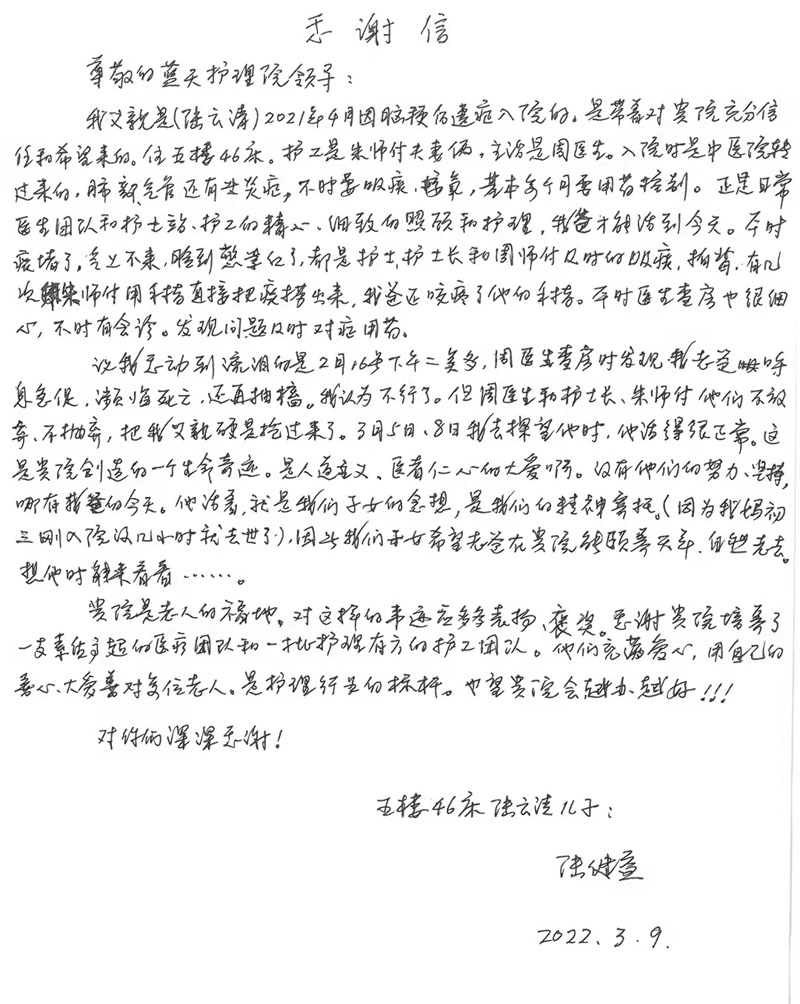 感谢信
尊敬的蓝天护理院领导：
我父亲是(陆云涛)2021年4月因脑梗后遗症入院的。是带着对贵院充分信
任和希望来的。住五楼46床。护工是朱师付夫妻俩，主治是周医生。入院时是中医院转
过来的，肺部气管还有炎症，不时要吸痰、输氧，基本每个月要用药控制。正是日常
医生团队和护士站、护工的精心、细致的照顾和护理，我爸才能活到今天。平时
痰堵了，气上不来，脸到憋紫红了，都是护士、护士长和周师付及时的吸痰，拍背，有几
次朱师付用手指直接把痰捞出来，我爸还咬疼了他的手指。平时医生查房也很细
心，不时有会诊。发现问题及时对症用药。
让我感动到流泪的是2月16号下午二点多，周医生查房时发现我老爸呼
息急促，濒临死亡，还再抽搐。我认为不行了。但周医生和护士长、朱师付他们不放
弃、不抛弃，把我父亲硬是抢过来了。3月5日、8日我去探望他时，他活得很正常。这
是贵院创造的一个生命奇迹。是人道主义、医者仁心的大爱啊。没有他们的努力、坚持，
哪有我爸的今天。他活着，就是我们子女的念想，是我们的精神寄托。(因为我妈初
三刚入院没几小时就去世了)，因此我们子女希望老爸在贵院能颐养天年、自然老去。
想他时能来看看……。
贵院是老人的福地。对这样的事迹应多多表扬、褒奖。感谢贵院培养了
一支素体了起的医疗团队和一批护理有方的护工团队。他们充满爱心，用自己的
善心、大爱善对多位老人。是护理行业的标杆。也望贵院会越办越好!!!
对你们深深感谢!
五楼46床陆云涛儿子：
陆健萱
2022.3.9.